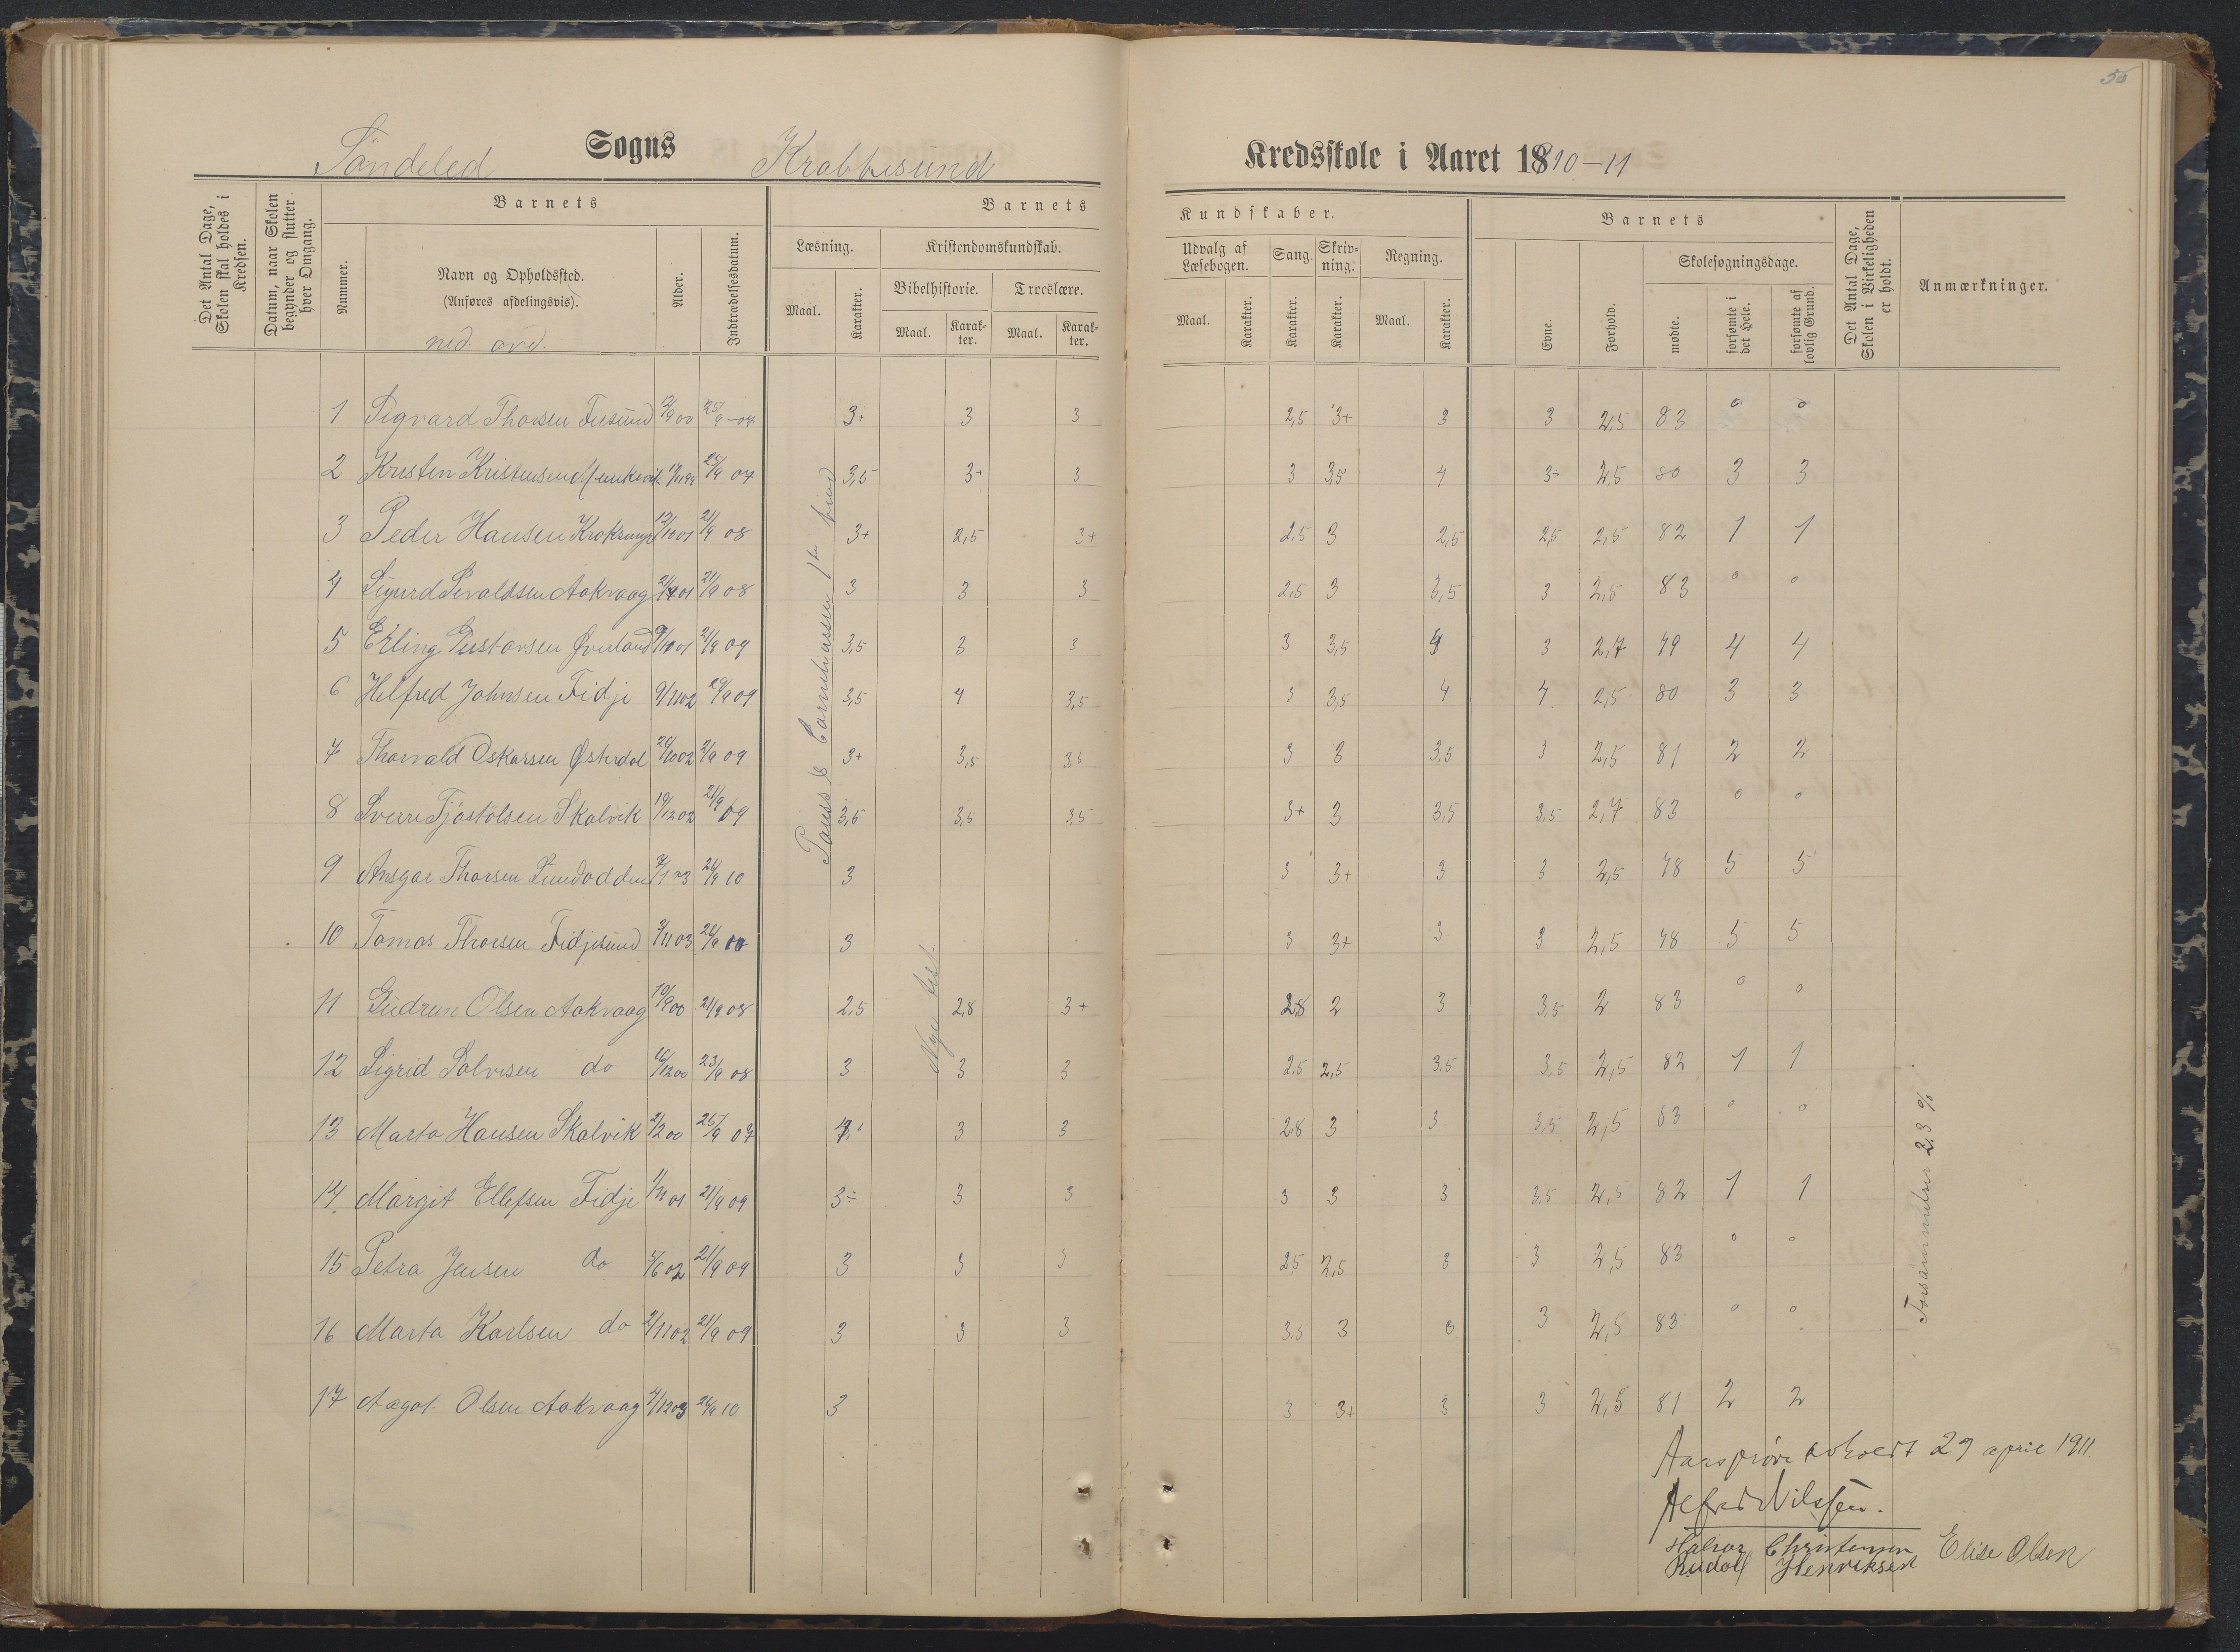 55
Söndeled Sogns Krabbesund Kredsskole i Aaret 1810-11
Det Antal Dage, Skolen skal holdes i Kredsen.
Datum, naar Skolen begynder og slutter hver Omgang.
Barnets
Nummer.
Navn og Opholdssted.
(Anføres afdelingsvis).
ned. avd.
Alder.
Indtrædelsesdatum.
Barnets Kundskaber.
Læsning.
Maal.
Karakter.
Kristendomskundskab.
Bibelhistorie.
Maal.
Karakter.
Troeslære.
Maal.
Karakter.
Udvalg af Læsebogen.
Maal.
Karakter.
Sang.
Karakter.
Skrivning.
Karakter.
Regning.
Maal.
Karakter.
Barnets
Evne.
Forhold.
Skolesøgningsdage.
mødte.
forsømte i det Hele.
forsømte af lovlig Grund.
Det Antal Dage, Skolen i Virkeligheden er holdt.
Anmærkninger.
1 Sigvard Thorsen 12/9 00 25/9-07 3+ 3 3 2,5 3+ 3 3 2,5 83 0 0
2 Kristen Kristensen 25/9 07 3,5 3+ 3 3 3,5 4 3÷ 2,5 80 3 3
3 Peder Hansen 12/10 01 21/9 08 3+ 2,5 3+ 2,5 3 2,5 2,5 2,5 82 1 1
4 Sigurd Sevaldsen Aakvaag 21/9 08 3 3 3 2,5 3 3,5 3 2,5 83 0 0
5 Erling Gustavsen Øverland 9/10 01 21/9 09 3,5 3 3 3 3,5 4 3 2,7 79 4 4
6 Helfred Johnsen Fidje 9/11 02 21/9 09 3,5 4 3,5 3 3,5 4 4 2,5 80 3 3
7 Thorvald Oskarsen Østerdal 26/10 02 21/9 09 3+ 3,5 3,5 3 3 3,5 3 2,5 81 2 2
8 Sverre Tjöstölsen Skalvik 19/12 02 21/9 09 3,5 3,5 3,5 3+ 3 3,5 3,5 2,7 83 0 0
9 Ansgar Thorsen Sundodden 7/1 03 26/9 10 3 3 3+ 3 3 2,5 78 5 5
10 Tomas Thorsen Fidjesund 3/11 03 26/9 10 3 3 3+ 3 3 2,5 78 5 5
11 Gudrun Olsen Aakvaag 19/9 00 21/9 08 2,5 2,8 3+ 2,8 2 3 3,5 2 83 0 0
12 Sigrid Solvesen do 16/12 00 23/9 08 3 3 3 2,5 2,5 3,5 3,5 2,5 82 1 1
13 Marta Hansen Skalvik 2/2 00 25/9 07 3 3 2,8 3 3 3,5 2,5 83 0 0
14 Margit Ellefsen Fidje 1/11 01 21/9 09 3÷ 3 3 3 3 3 3,5 2,5 82 1 1
15 Petra Jensen do 5/6 02 21/9 09 3 3 3 2,5 2,5 3 3 2,5 83 0 0
16 Marta Karlsen do 2/11 02 21/9 09 3 3 3 3,5 3 3 3 2,5 83 0 0
17 Aagot Olsen Aakvaag 4/12 03 26/9 10 3 3 3+ 3 3 2,5 81 2 2
Pauss & Corneliussen 1ste bind
Nye test.
Forsømmelser 2,3 %
Aarsprøve avholdt 29 april 1911.
Alfred Nilssen.
Halvor Christensen Elise Olsen
Rudolf Henriksen